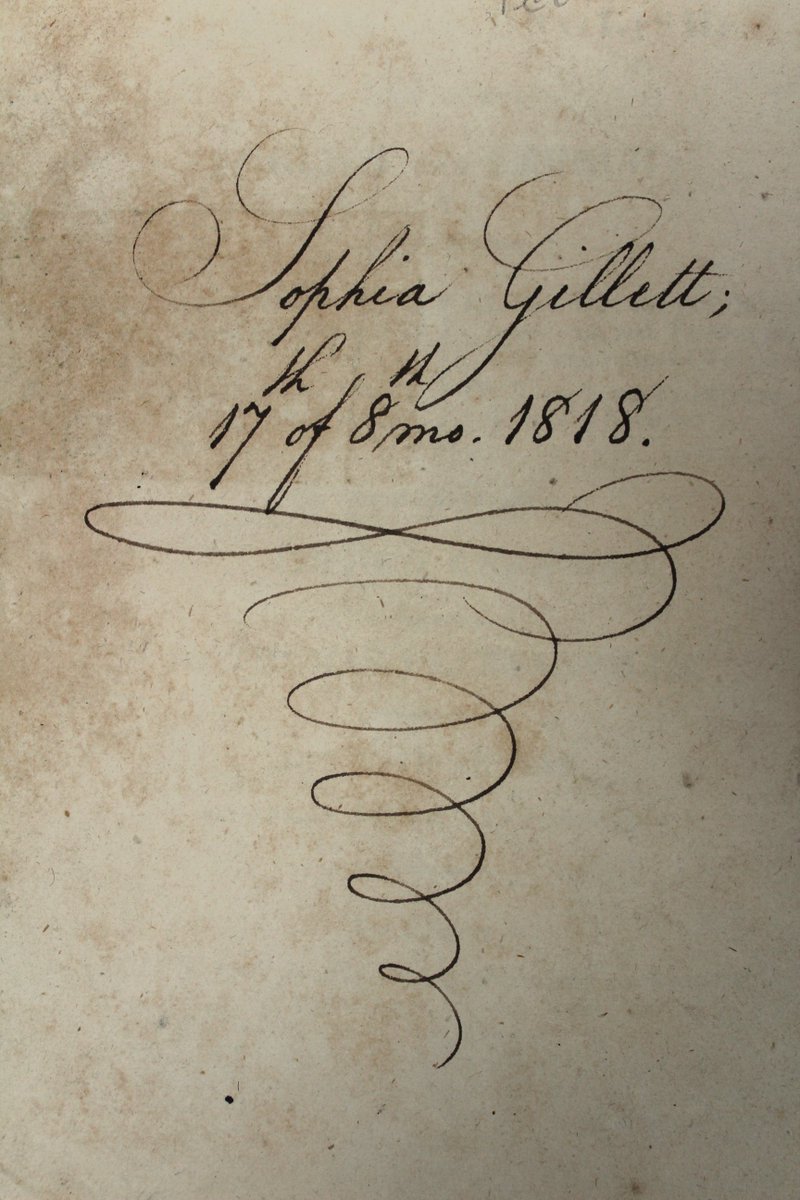 Sophia Gillett;
17th of 8th mo. 1818.